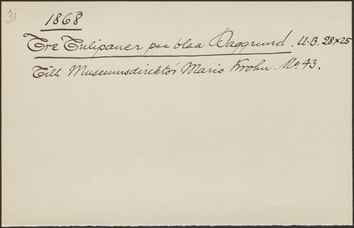 31
1868
Tre Tulipaner paa blaa Baggrund. U.B. 28x25
Till Museumsdirektör Mario Krohn. No 43.